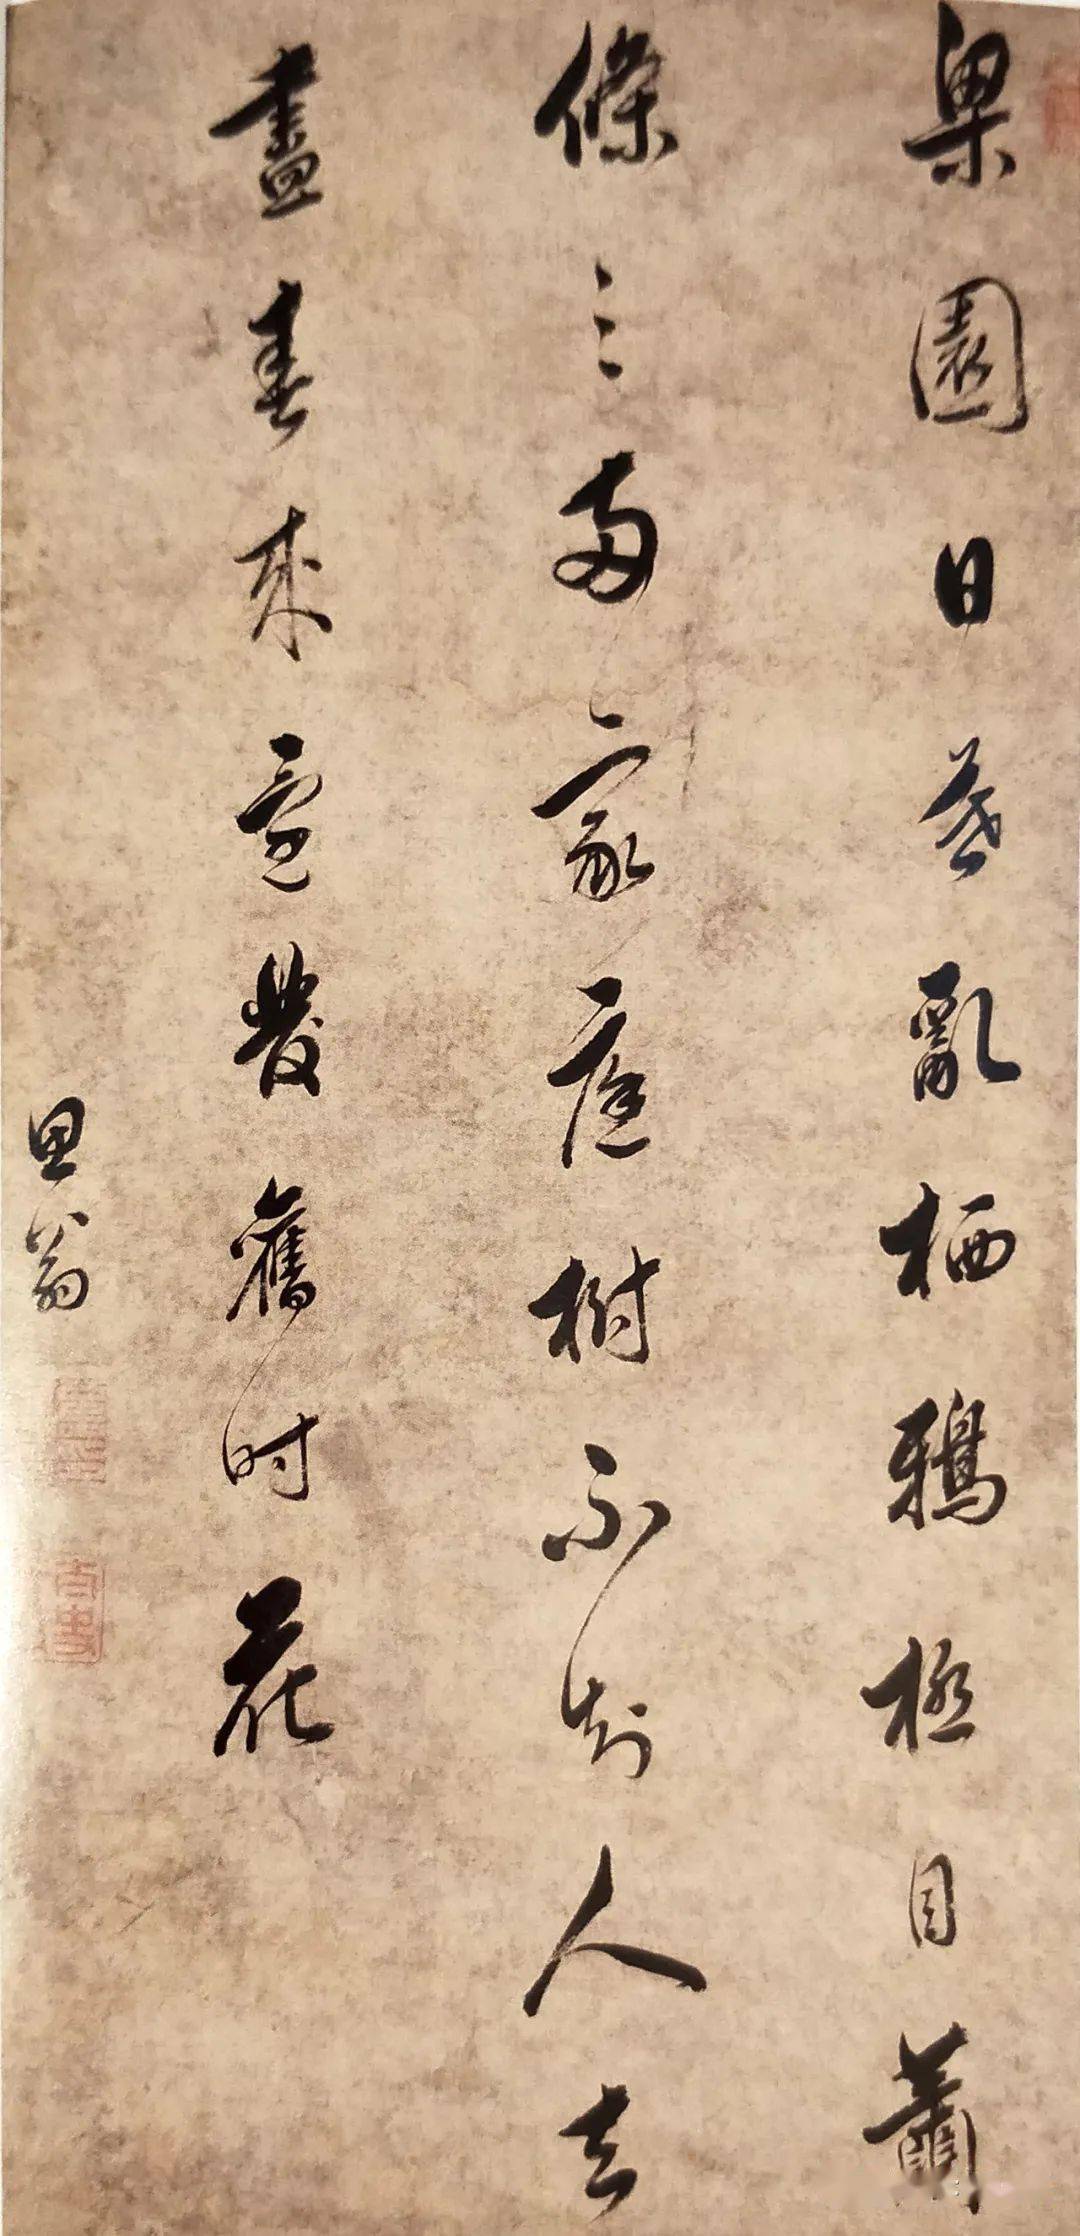 梁園日暮亂栖鴉極目蕭
條三兩家庭樹不知人去
盡春來還發舊时花
思翁